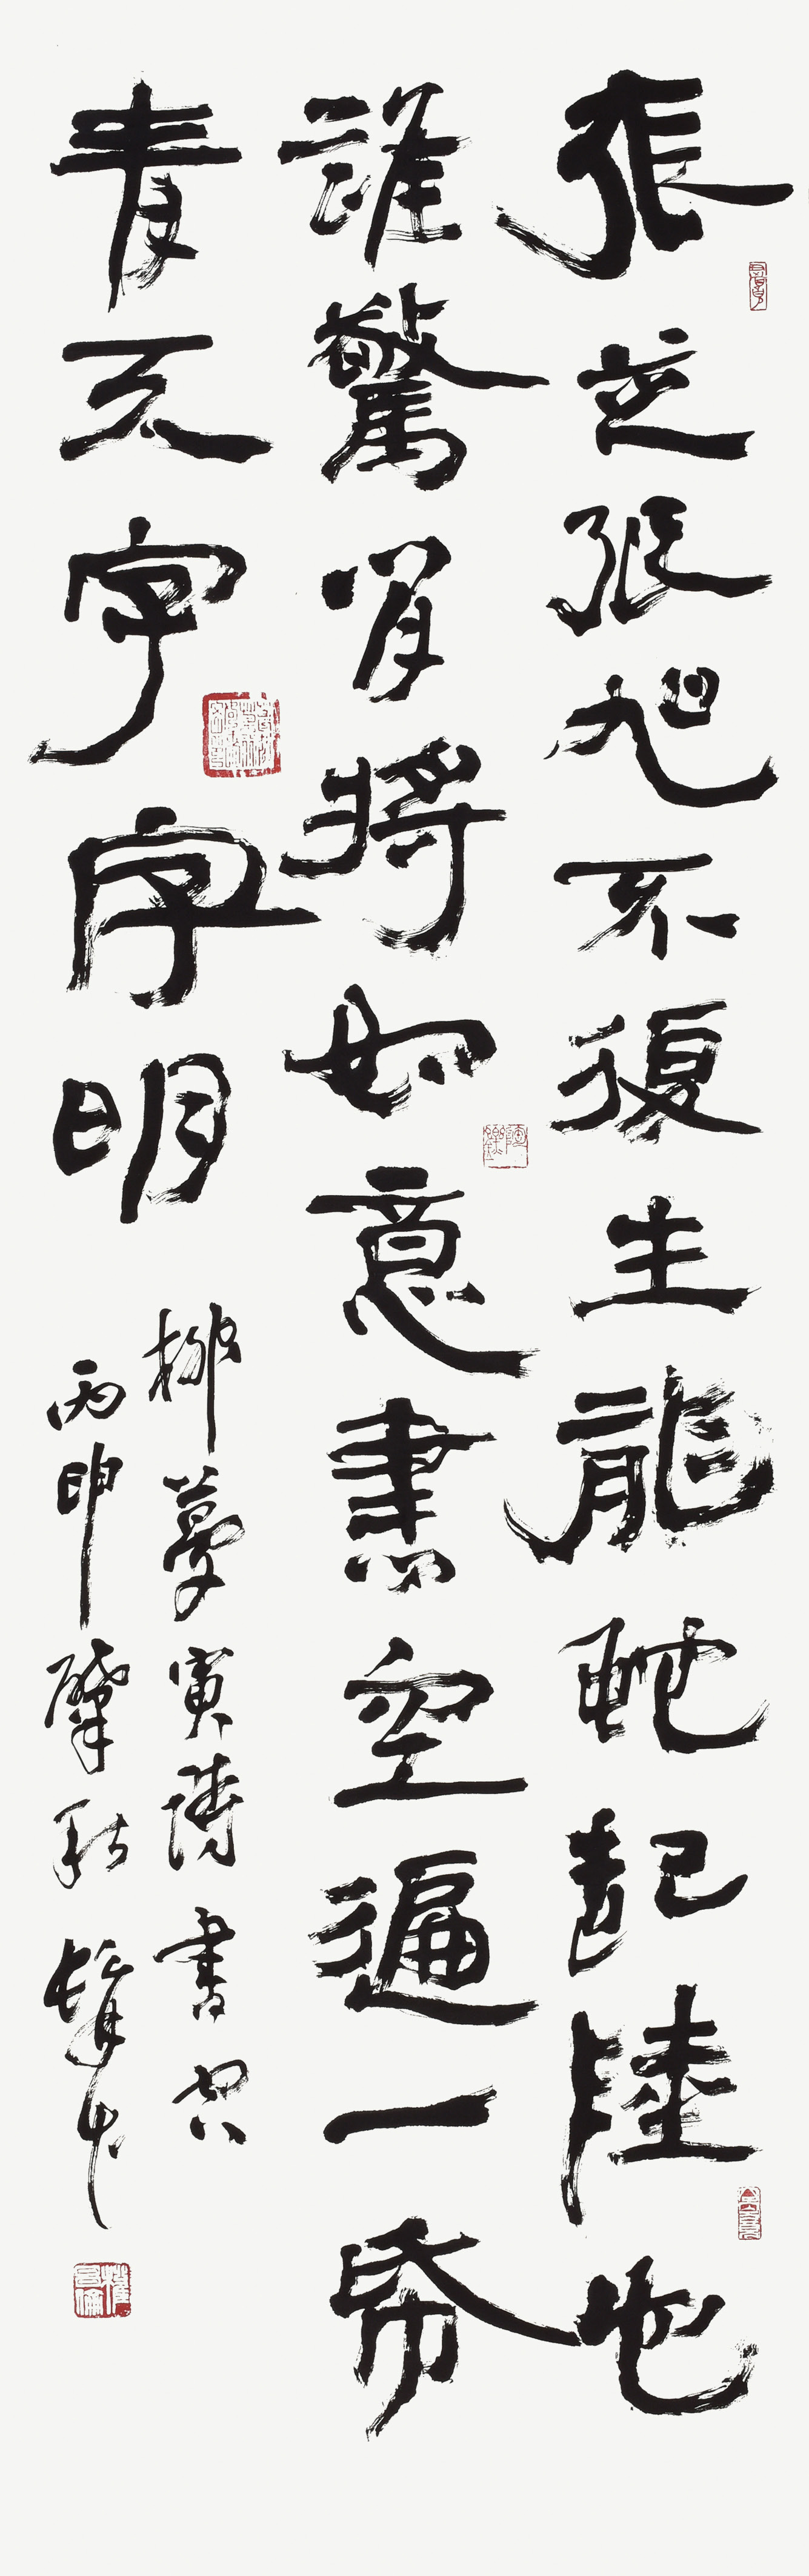 張芝張旭不復生龍蛇起陸世
誰驚閒將如意書空遍一帋
青天字字明
柳夢寅詩書空
丙申肇秋